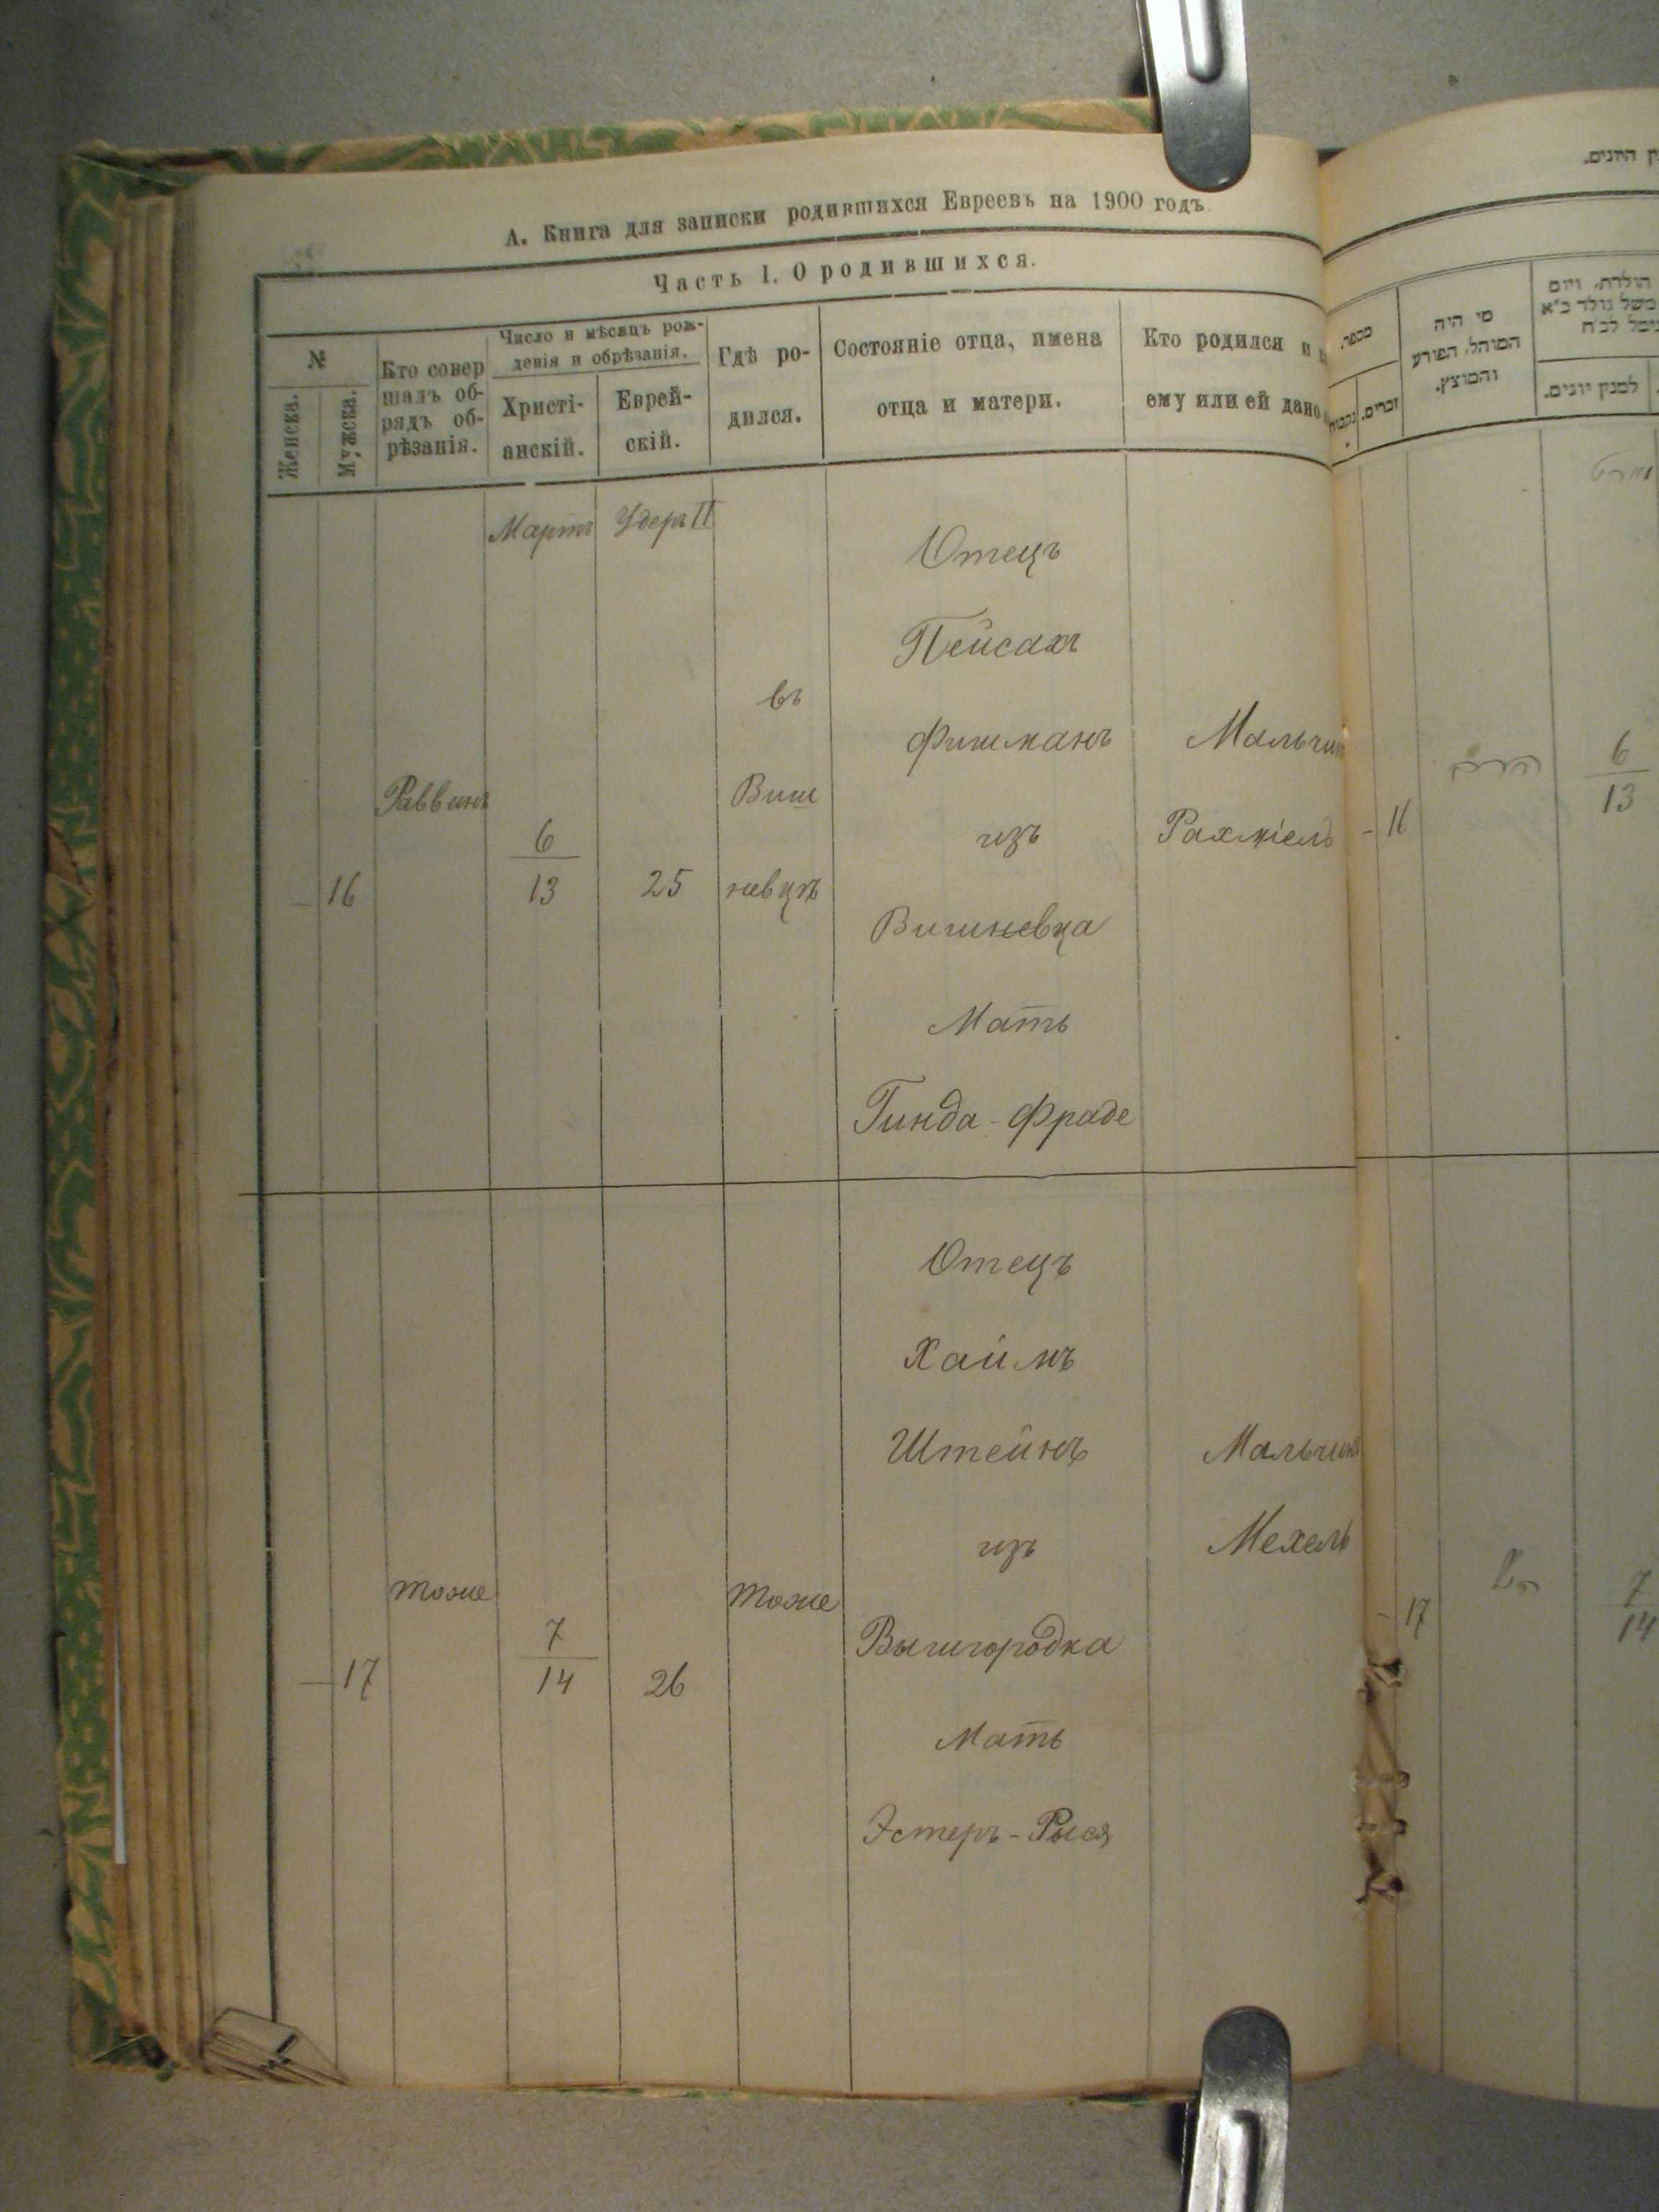 А. Книга для записки родившихся Евреевъ на 1900 годъ.
Часть I. О родившихся.
№
Женска.
Мужска.
Кто совер
шалъ об-
рядъ об-
рѣзанія.
Число и мѣсяцъ рож-
денія и обрѣзанія.
Христі-
анскій.
Еврей-
скій.
Гдѣ ро-
дился.
Состояніе отца, имена
отца и матери.
Кто родился и
ему или ей дано
Мартъ
Удеръ II
16
Раввинъ
6
13
25
въ
Виш
невцѣ
Отецъ
Пейсахъ
Фишманъ
изъ
Вишневца
Мать
Гинда-Фраде
Мальчик
Рахміель
17
тоже
7
14
26
тоже
Отецъ
Хаимъ
Штейнъ
изъ
Вышгородка
Мать
Эстеръ-Рыся
Мальчикъ
Мехель
היונים.
מספר.
זכרים.
נקבות
מי היה
המוהל, הפורע
והמוצץ.
הולדת, ויום
למנין יונים.
16
6
13
17
7
14